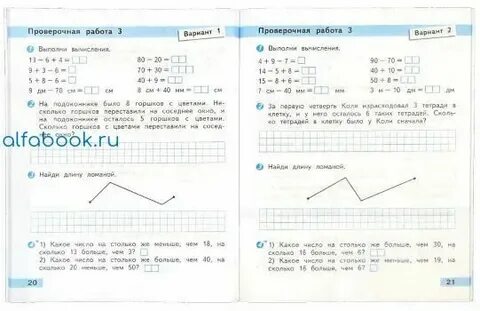 Проверочная работа 3
Вариант 1
1 Выполни вычисления.
13 − 6 + 4 =
80 − 20 =
9 + 3 − 6 =
70 + 30 =
5 + 8 − 6 =
40 + 9 =
9 дм − 70 см = см
8 дм − 40 мм = мм
2 На подоконнике было 8 горшков с цветами. Не-
сколько горшков переставили на соседнее окно, и
на подоконнике осталось 5 горшков с цветами.
Сколько горшков с цветами переставили на сосед-
нее окно?
alfabook.ru
3 Найди длину ломаной.
4 1) Какое число на столько же меньше, чем 18, на
сколько 13 больше, чем 3?
2) Какое число на столько же больше, чем 40, на
сколько 20 меньше, чем 50?
20
Проверочная работа 3
Вариант 2
1 Выполни вычисления.
4 + 9 − 7 =
90 − 70 =
14 − 5 + 8 =
40 + 10 =
15 − 8 + 6 =
50 + 8 =
7 дм − 40 см = см
3 м − 10 дм = дм
2 За первую четверть Коля израсходовал 3 тетради в
клетку, и у него осталось 6 таких тетрадей. Сколь-
ко тетрадей в клетку было у Коли сначала?
3 Найди длину ломаной.
4 1) Какое число на столько же больше, чем 30, на
сколько 16 больше, чем 6?
2) Какое число на столько же меньше, чем 19, на
сколько 16 больше, чем 6?
21